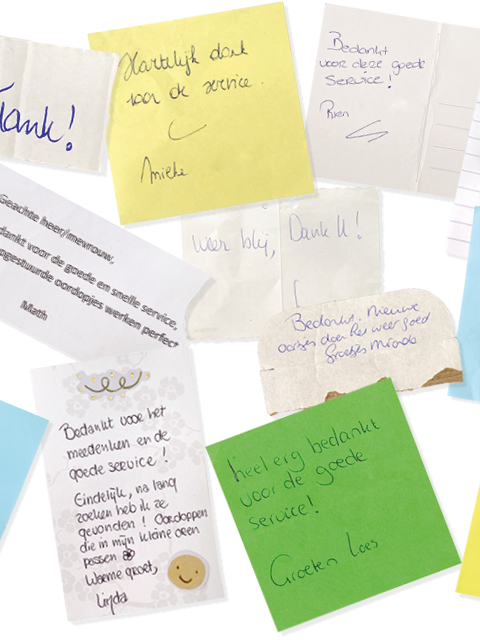 Dank!
Hartelijk dank
voor de service.
Anieke
Bedankt
voor deze goede
service!
Geachte heer/mevrouw,
dankt voor de goede en snelle service,
opgestuurde oordopjes werken perfect
Math
Weer blij,
Dank U!
Bedankt. Nieuwe
oortjes doen het weer goed
Groetjes Miranda
Bedankt voor het
meedenken en de
goede service!
Eindelijk, na lang
zoeken heb ik ze
gevonden! Oordoppen
die in mijn kleine oren
passen
Warme groet,
Linda
heel erg bedankt
voor de goede
service!
Groeten Loes